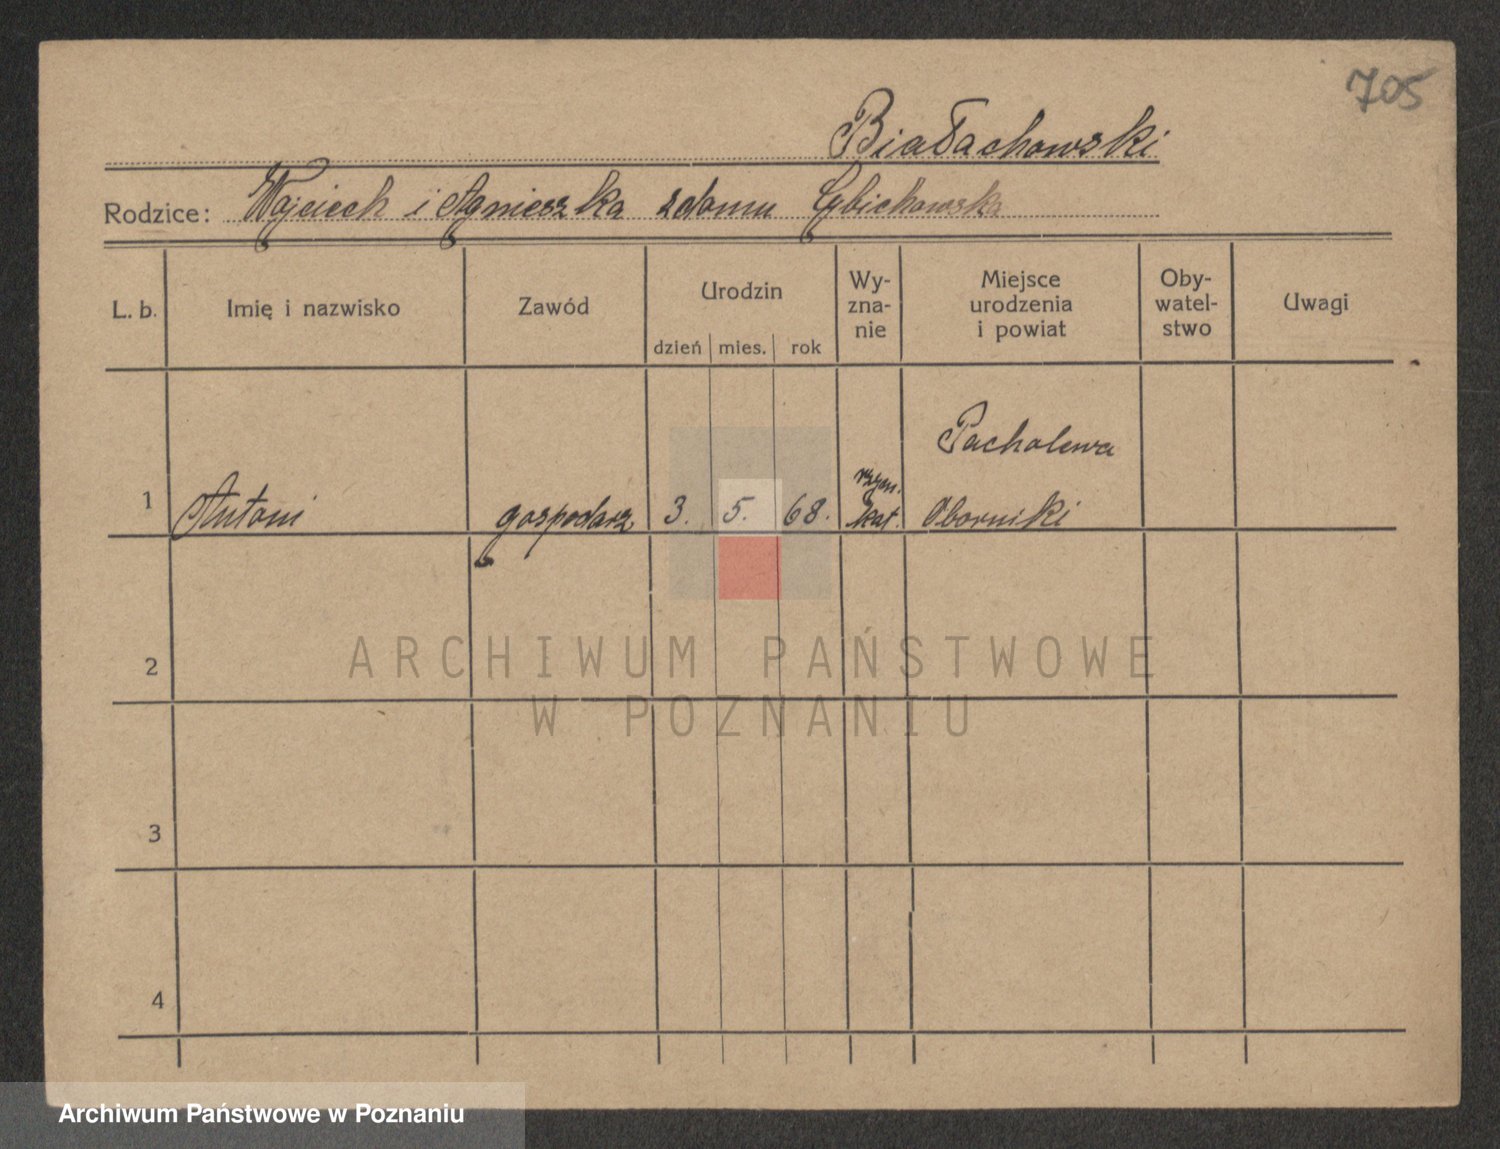 705
Białachowski
Rodzice: Wojciech i Agnieszka z domu Gbichowska
L. b. Imię i nazwisko Zawód Urodzin dzień mies. rok Wy-zna-nie Miejsce urodzenia i powiat Oby-watel-stwo Uwagi
Pacholewa
1 Antoni gospodarz 3. 5. 68. rzym. kat. Oborniki
2
ARCHIWUM PAŃSTWOWE
W POZNANIU
3
4
Archiwum Państwowe w Poznaniu